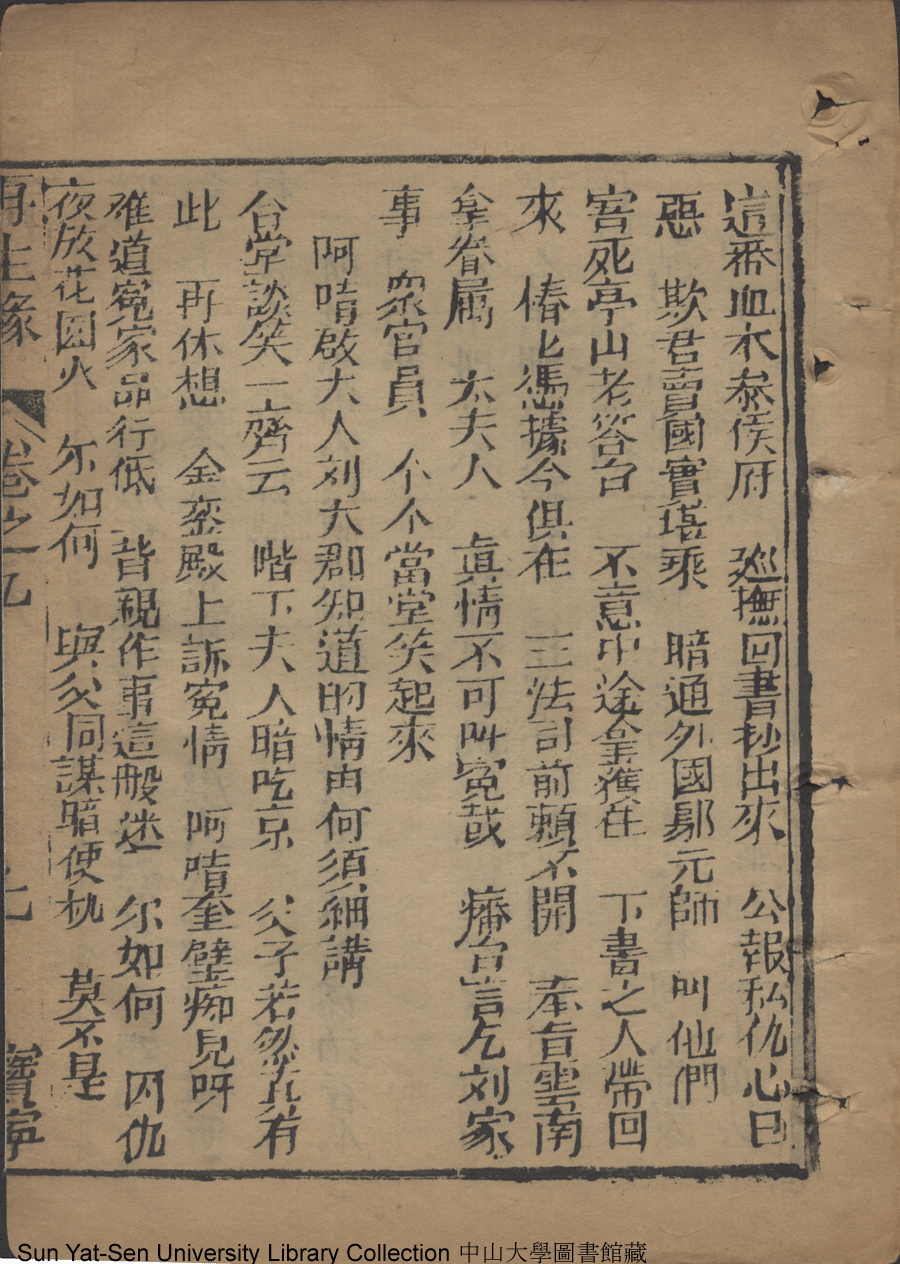 這番血水泰侯府　廵撫回書抄出來　公報私仇心曰
惡　欺君賣國實堪乘　暗通外國鄔元師　叫他們
害死亭山老答台　不意中途拿獲在　下書之人帶回
來　椿匕馮據今俱在　三法司前賴不開　奉旨雲南
拿眷属　太夫人　真情不可叫冤哉　台言乞刘家
事　眾官員　个个當堂笑起來
阿唷啟大人刘大郡知道的情由何須細講
合堂談笑一齊云　喈下夫人暗吃京　父子若然真有
此　再休想　金鑾殿上訴冤情　呵唷奎璧痴兒呀
难道冤家品行低　皆親作事這般迷　尔如何　因仇
夜放花园火　尔如何　與父同謀暗使机　莫不是
再生緣　卷之九　七　寶寧
Sun Yat-Sen University Library Collection 中山大學圖書館藏